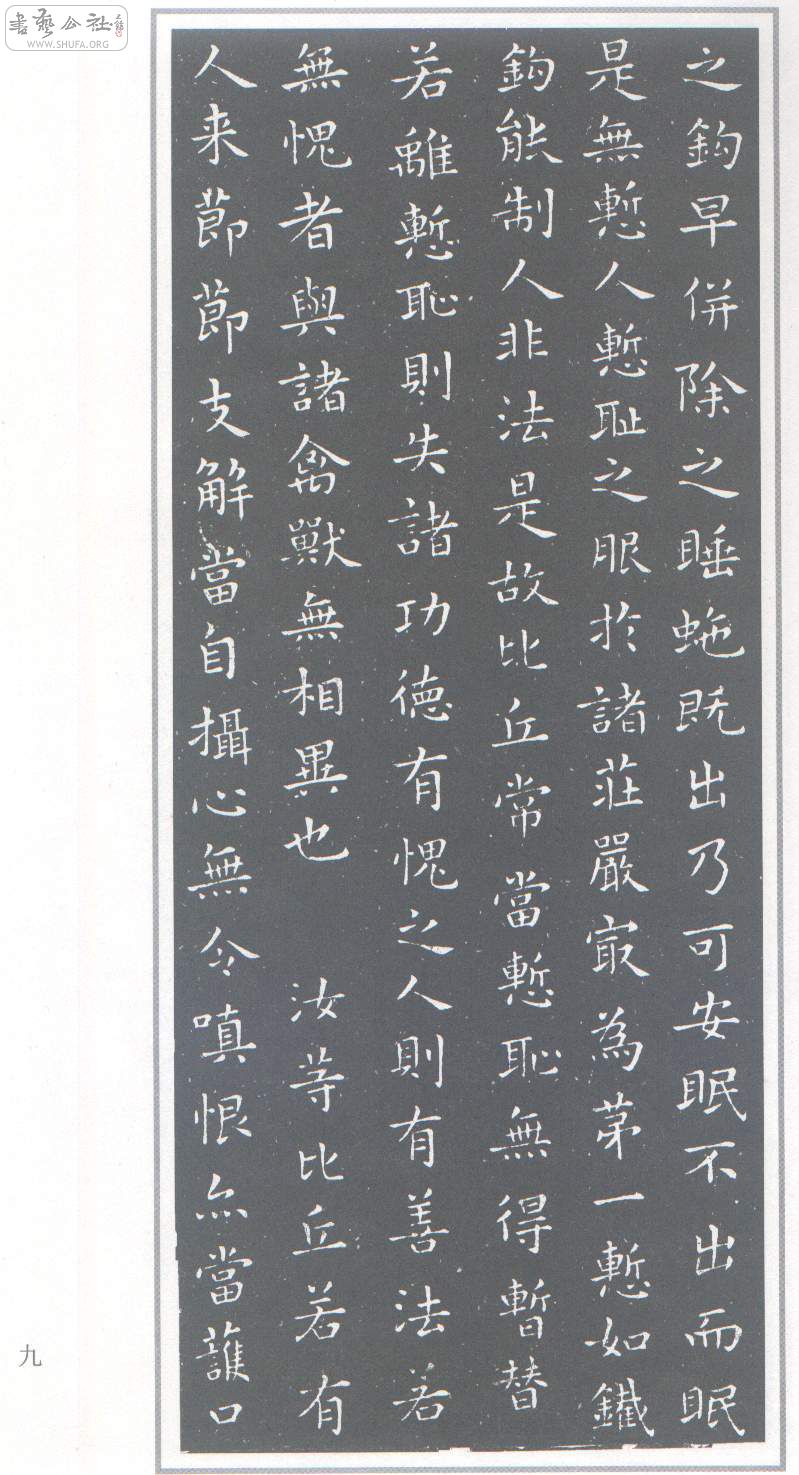 之鈎早併除之睡虵既出乃可安眠不出而眠
是無慙人慙耻之服扵諸莊嚴㝡為苐一慙如鐵
鈎能制人非法是故比丘常當慙恥無得暫替
若離慙恥則失諸功德有愧之人則有善法若
無愧者與諸禽獸無相異也　汝等比丘若有
人来節節支解當自攝心無令嗔恨亦當護口
九
書藝公社
WWW.SHUFA.ORG